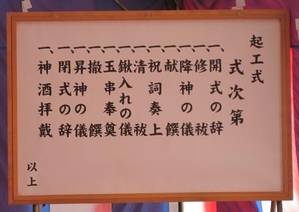 起工式
式次第
一、開式の辞
一、修祓
一、降神の儀
一、献饌
一、祝詞奏上
一、清祓
一、鍬入れの儀
一、玉串奉奠
一、撤饌
一、昇神の儀
一、閉式の辞
一、神酒拝戴
以上